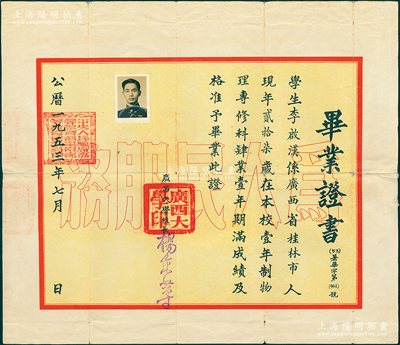 畢業證書
(53)畢業字第(961)號
學生李啟漢係廣西省桂林市人
現年貳拾柒歲在本校壹年制物
理專修科肄業壹年期滿成績及
格准予畢業此證
廣西大學
廣西大學印
公曆一九五三年七月 日
為人民服務
上海陽明拍賣